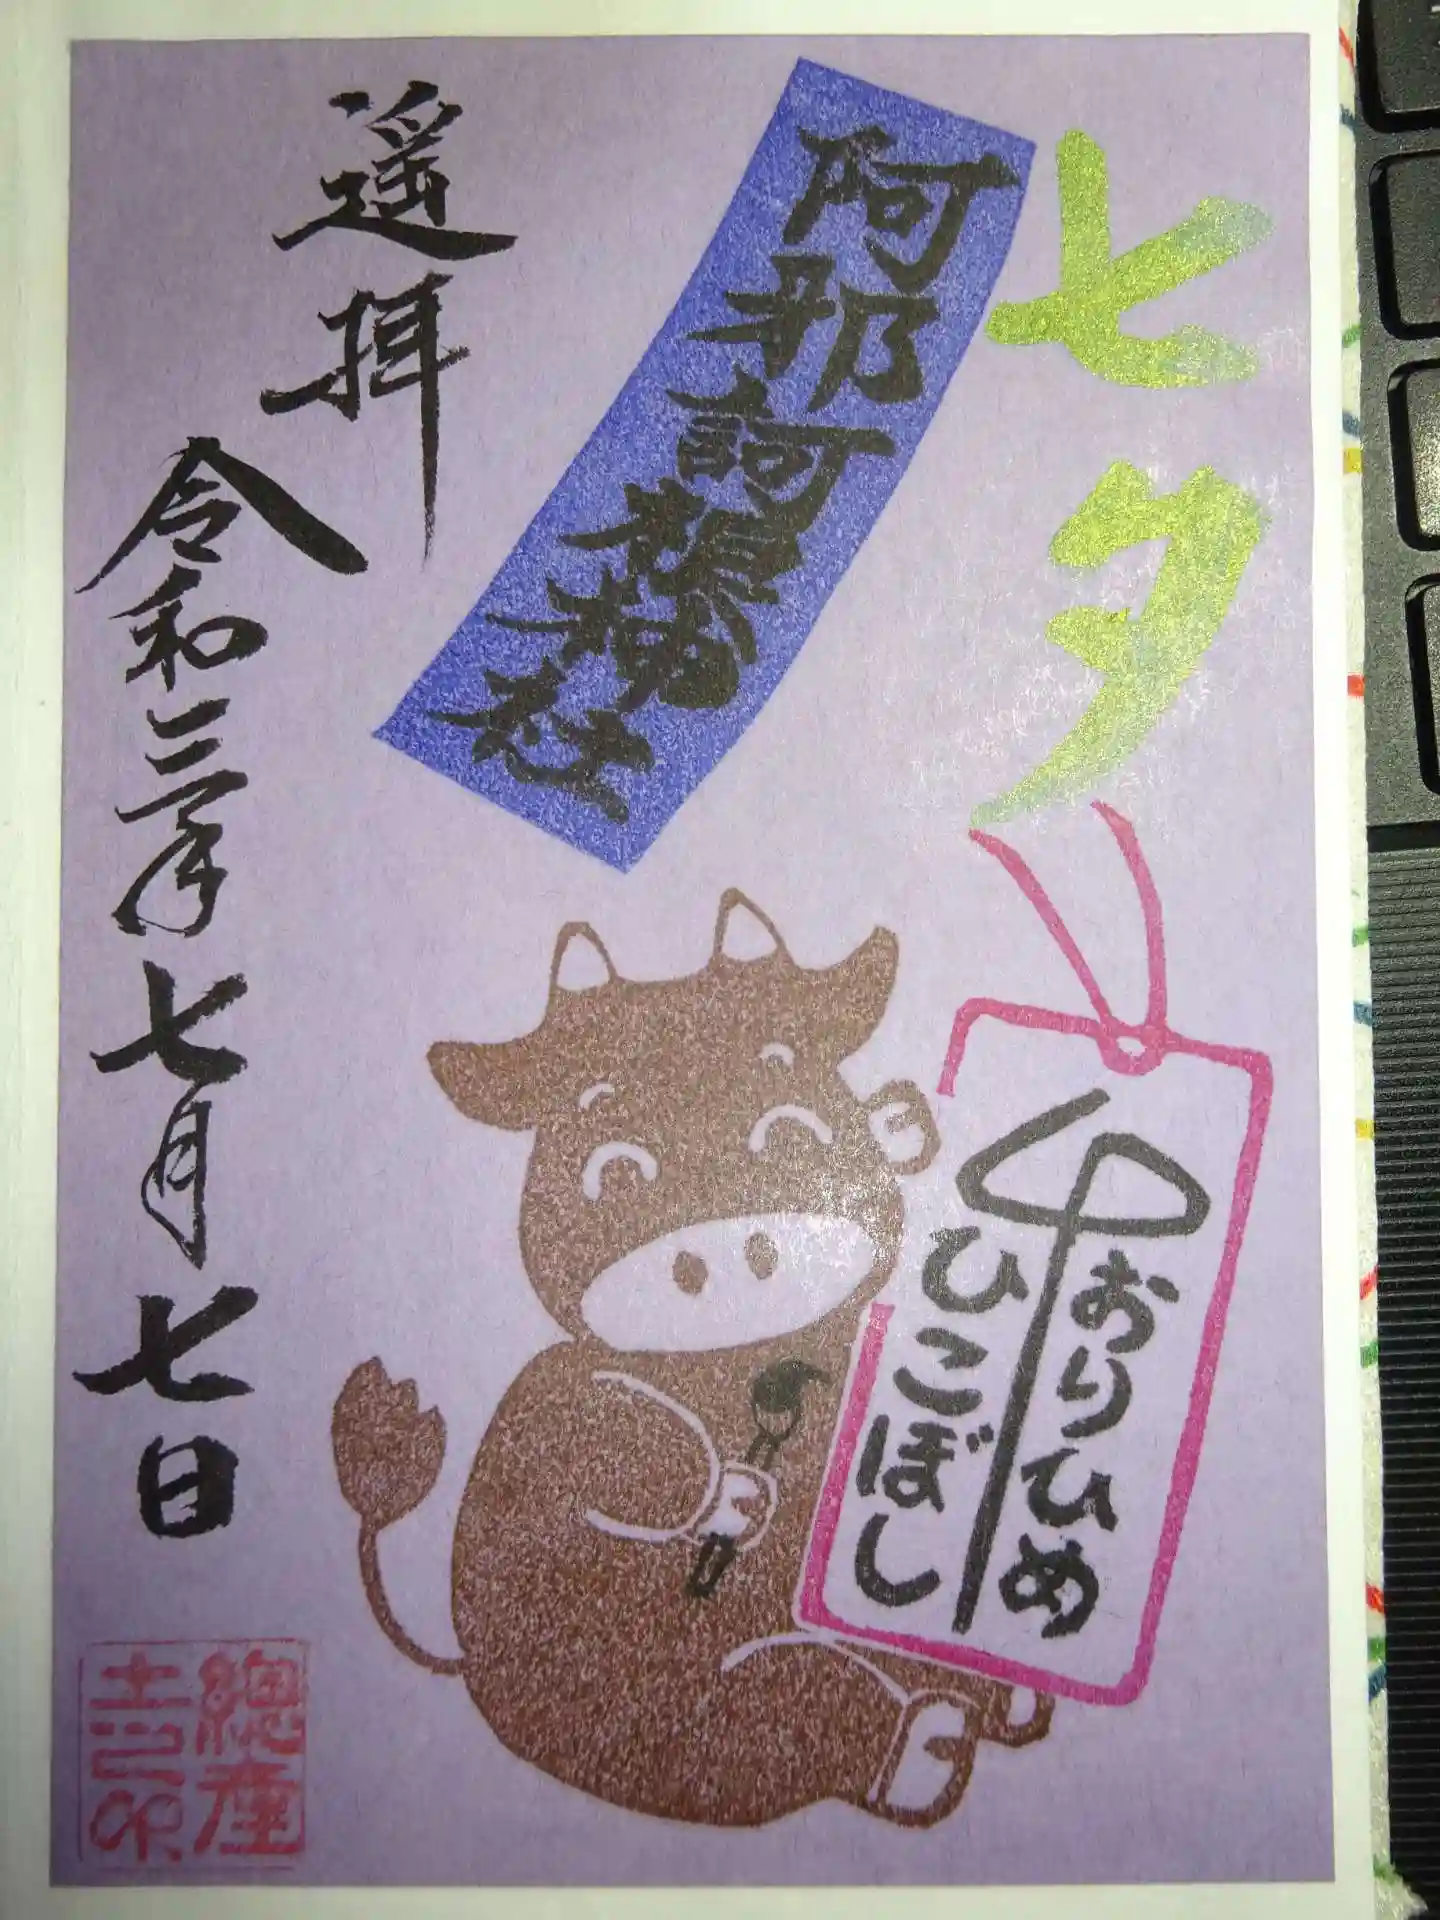 七夕
阿邪訶根神社
おりひめ
ひこぼし
遥拝
令和三年七月七日
總産
土之印